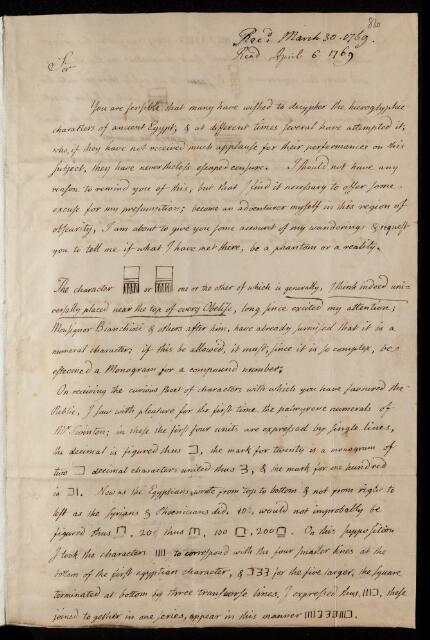 Rec'd March 30. 1769.
Read April 6 1769
Sir
You are sensible that many have wished to decypher the hieroglyphic
characters of ancient Egypt, & at different times several have attempted it,
who, if they have not received much applause for their performances on this
subject, they have nevertheless escaped censure. I should not have any
reason to remind you of this, but that I find it necessary to offer some
excuse for my presumption; become an adventurer myself in this region of
obscurity, I am about to give you some account of my wanderings & request
you to tell me if what I have met there, be a phantom or a reality.
The character or one or the other of which is generally, I think indeed uni-
versally placed near the top of every Obelisc, long since excited my attention;
Monsignor Bianchini & others after him, have already surmised that it is a
numeral character; if this be allowed, it must, since it is so complex, be
esteemed a Monogram for a compound number.
On receiving the curious sheet of characters with which you have favoured the
Public, I saw with pleasure for the first time the palmyrene numerals of
Mr. Swinton; in these the first four units are expressed by single lines,
the decimal is figured thus, the mark for twenty is a monogram of
two decimal characters united thus, & the mark for one hundred
is. Now as the Egyptians wrote from top to bottom & not from right to
left as the Syrians & Phoenicians did, 10, would not improbably be
figured thus, 20 thus, 100, 200. On this supposition
I took the characters IIII to correspond with the four smaller lines at the
bottom of the first egyptian character, & for the five larger, the square
terminated at bottom by three transverse lines, I expressed thus, these
joined together in one series, appear in this manner